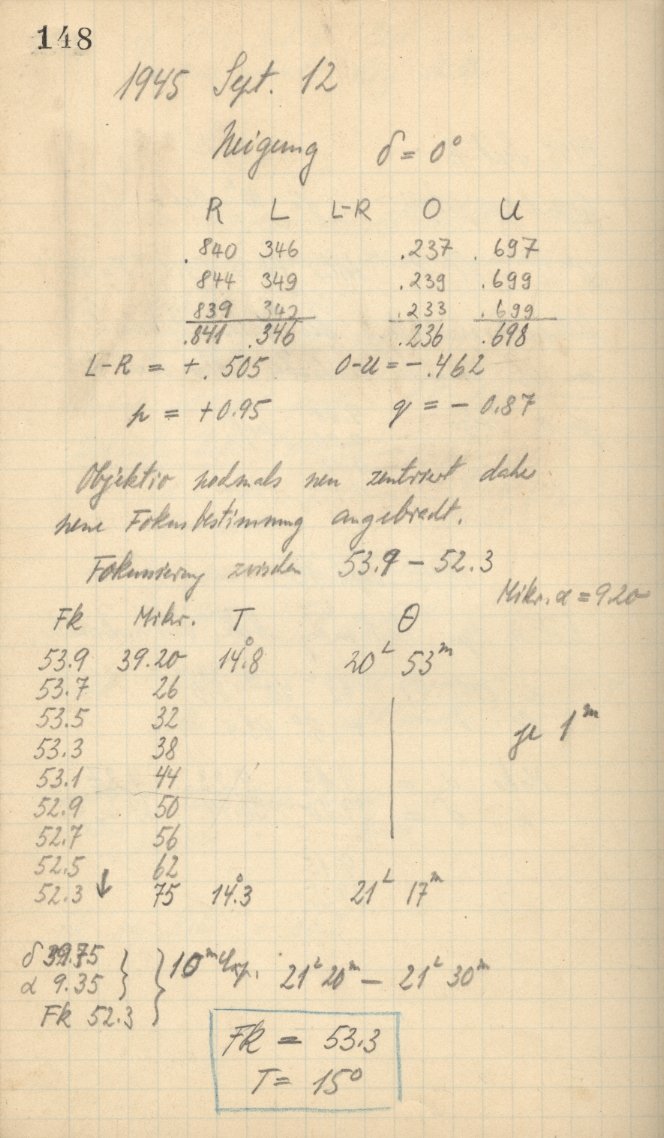 148
1945 Sept. 12
Neigung δ = 0°
R L L-R O U
.840 346 .237 .697
844 349 .239 .699
839 342 .233 .699
.841 .346 .236 .698
L-R = +.505 O-U = -.462
p = +0.95 q = -0.87
Objektiv nochmals neu zentriert daher
neue Fokusbestimmung angebracht.
Fokussierung zwischen 53.9 - 52.3
Mikr. α = 9.20
Fk Mikr. T Θ
53.9 39.20 14°.8 20h 53m
53.7 26
53.5 32
je 1m
53.3 38
53.1 44
52.9 50
52.7 56
52.5 62
52.3 ↓ 75 14°.3 21h 17m
δ 39.75
α 9.35 10m Exp. 21h 20m - 21h 30m
Fk 52.3
Fk = 53.3
T = 15°